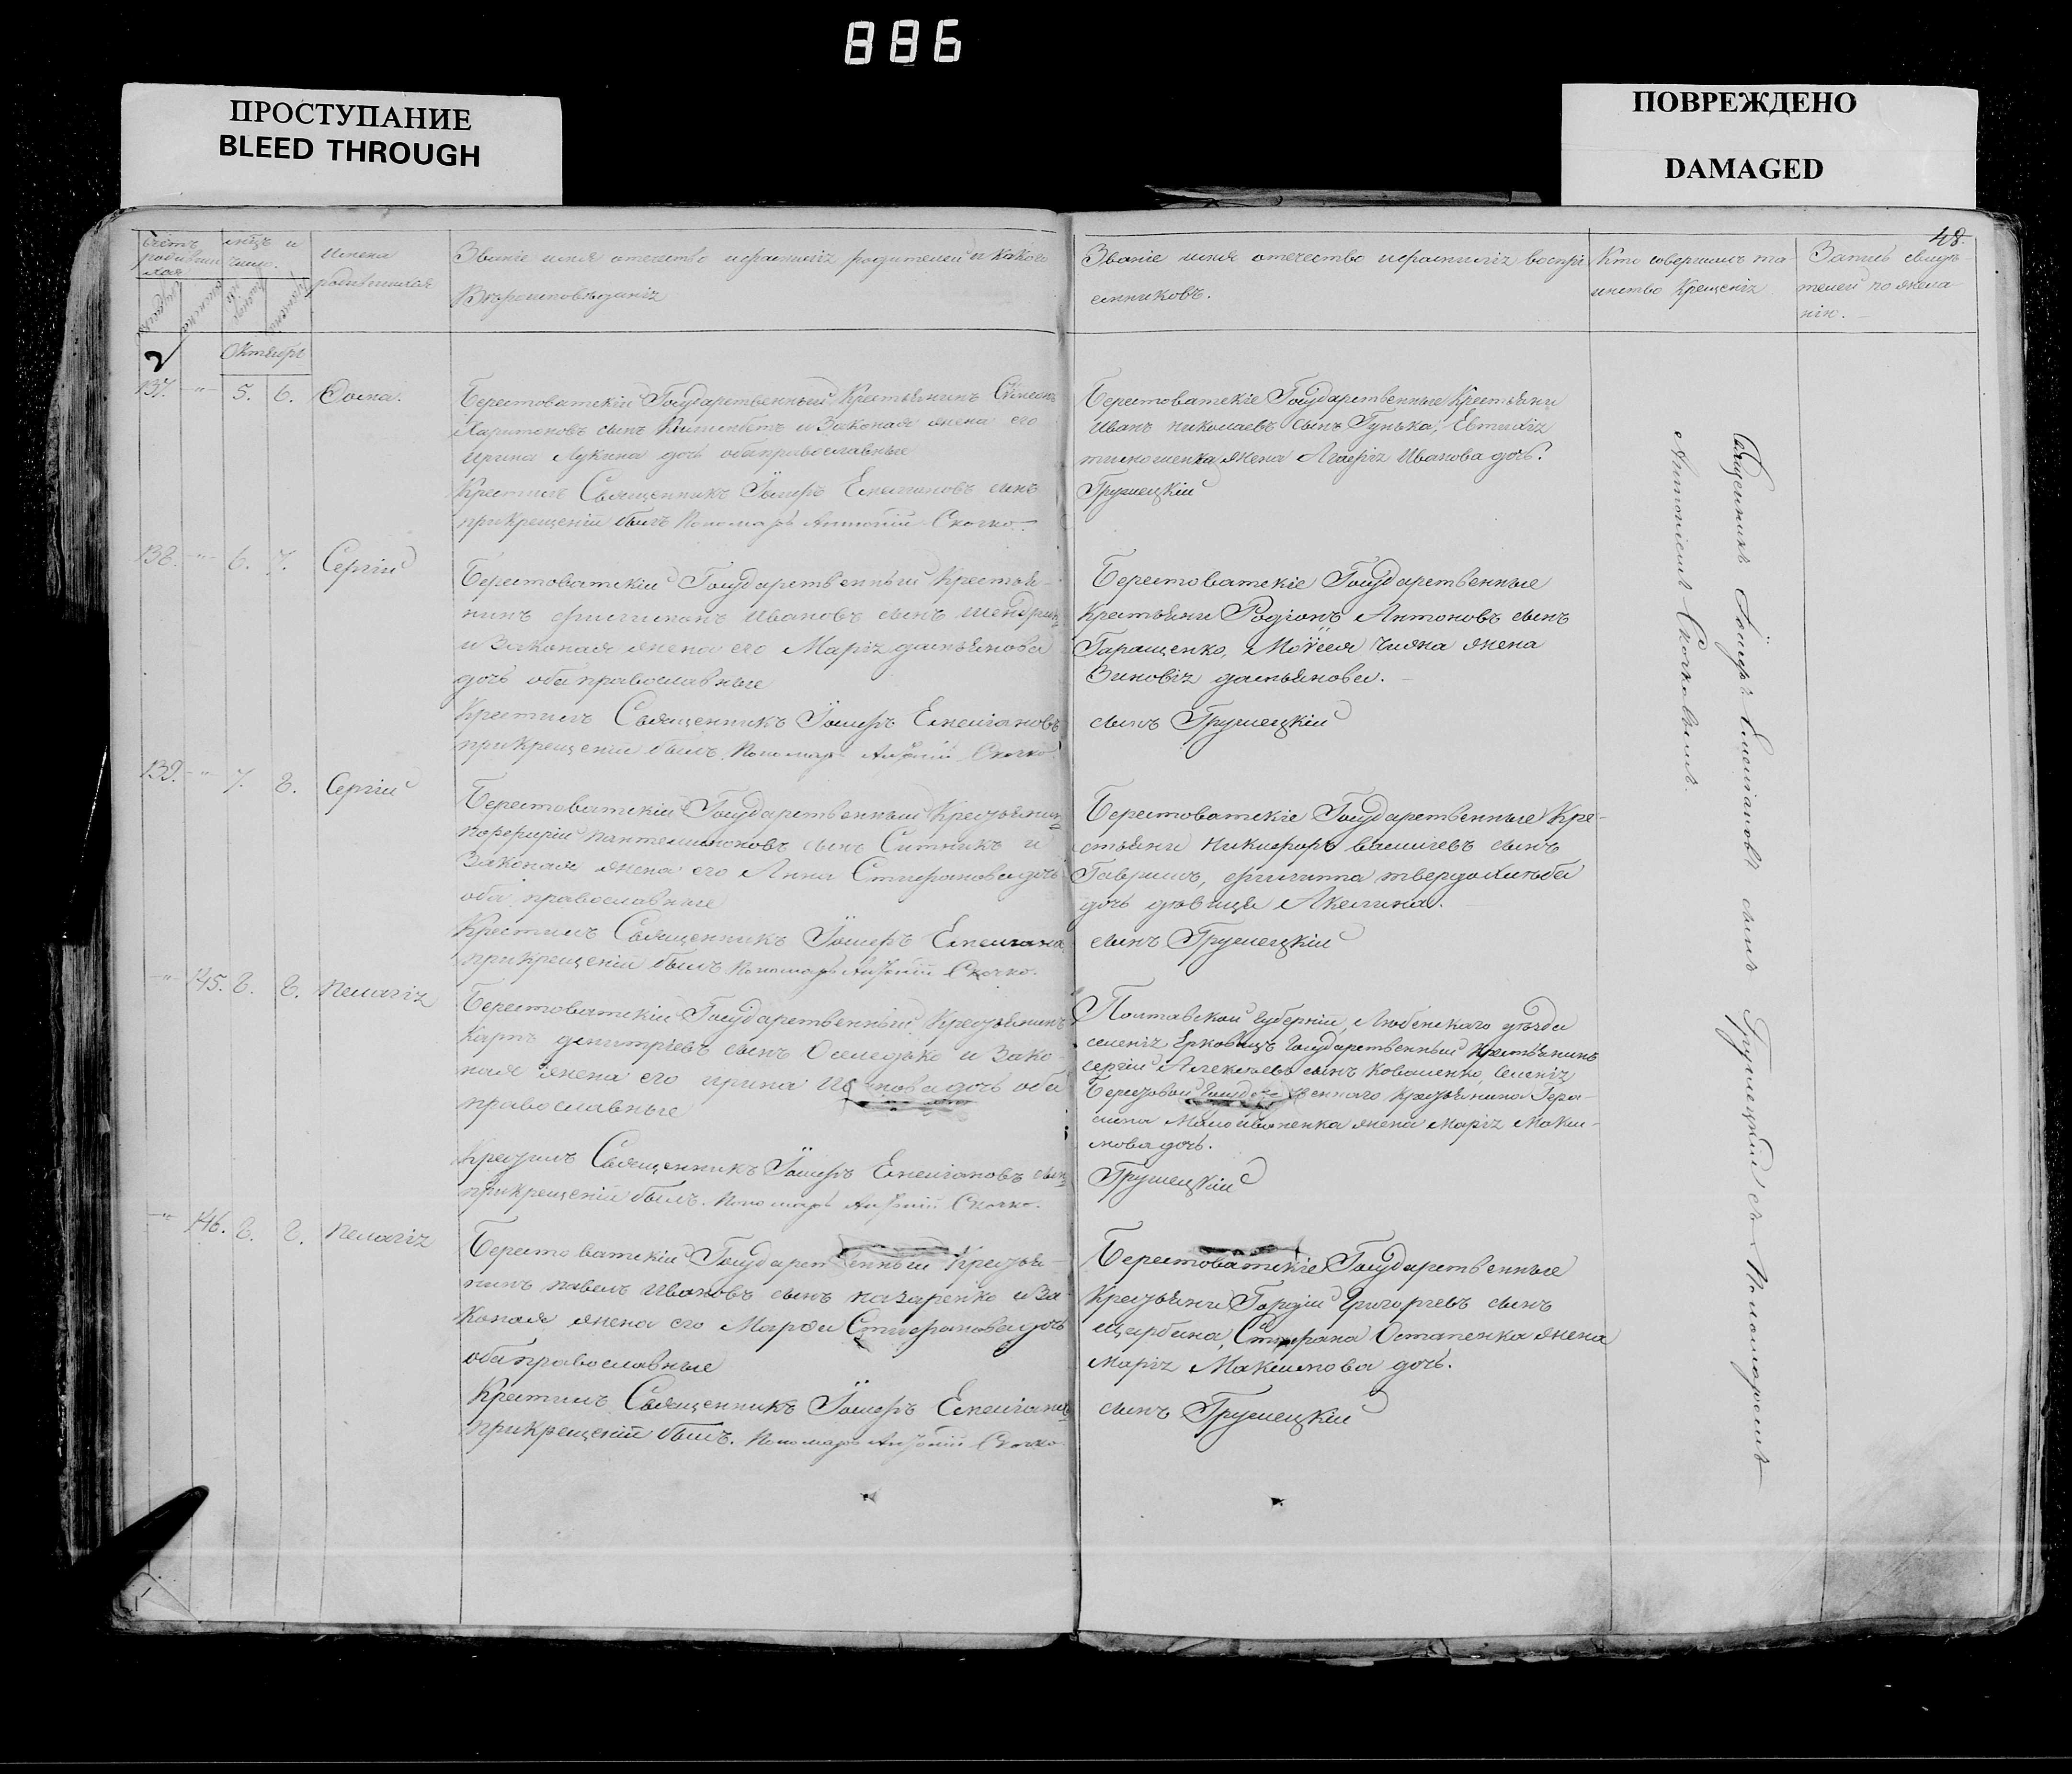 886
ПРОСТУПАНИЕ
BLEED THROUGH
ПОВРЕЖДЕНО
DAMAGED
48.
Имена
родившихся
Званіе имя отечество и фамилія родителей и какого
Вѣроисповѣданія
Званіе имя отечество и фамилія воспрі
емниковъ.
Кто совершилъ та
инство Крещенія
нію.
2
Октябрь
137. 5. 6. Ѳома.
Берестоватскій Государственный Крестьянинъ
Харитоновъ сынъ и Законая жена его
Ирина Лукина дочь оба православные
Крестилъ Священникъ Іосифъ Емеліановъ сынъ
при крещеніи былъ Пономарь Антоній Скочко.
Берестоватскіе Государственные Крестьяни
Иванъ Николаевъ сынъ Гунька, Евтихія
жена Агафія Иванова дочь.
Грушецкій
138. 6. 7. Сергій
Берестоватскій Государственный Крестья-
нинъ Филимонъ Ивановъ сынъ
и Законая жена его Марія Дамьянова
дочь оба православные
Крестилъ Священникъ Іосифъ Емеліановъ
при крещеніи былъ. Пономарь Антоній Скочко.
Берестоватскіе Государственные
Крестьяни Родіонъ Антоновъ сынъ
Гаращенко, Моѵсея жена
Зиновія Дамьянова.
сынъ Грушецкій
139. 7. 8. Сергій
Берестоватскій Государственный Крестьянинъ
Порфирій Пантелимоновъ сынъ Ситникъ и
Законая жена его Анна Стефанова дочь
оба православные
Крестилъ Священникъ Іосифъ Емеліано
при крещеніи былъ Пономарь Антоній Скочко.
Берестоватскіе Государственные Кре-
стьяни Никифоръ Василіевъ сынъ
Гаврилъ, Филиппа Твердохлѣба
дочь дѣвица Акелина.
сынъ Грушецкій
145. 8. 8. Пелагія
Берестоватскій Государственный Крестьянинъ
Карпъ Димитріевъ сынъ Оселедько и Зако-
ная жена его Ирина дочь оба
православные
Крестилъ Священникъ Іосифъ Емеліановъ сынъ
при крещеніи былъ. Пономарь Антоній Скочко.
Полтавской Губерніи, Любенскаго уѣзда
селенія Государственный Крестьянинъ
Сергій Алексѣевъ сынъ Коваленко, селенія
Березовой Крестьянина Гера-
сима жена Марія Макси-
мова дочь.
Грушецкій
146. 8. 8. Пелагія
Берестоватскій Государственный Крестья-
нинъ Павелъ Ивановъ сынъ Назаренко и За-
коная жена его Марѳа Стефанова дочь
оба православные
Крестилъ Священникъ Іосифъ Емеліановъ
при крещеніи былъ. Пономарь Антоній Скочко.
Берестоватскіе Государственные
Крестьяни Гордій Григоріевъ сынъ
Щербина, Стефана Остапенка жена
Марія Максимова дочь.
сынъ Грушецкій
Священникъ Іосифъ Емеліановъ сынъ Грушецкій съ Пономаремъ
Антоніемъ Скочковымъ.